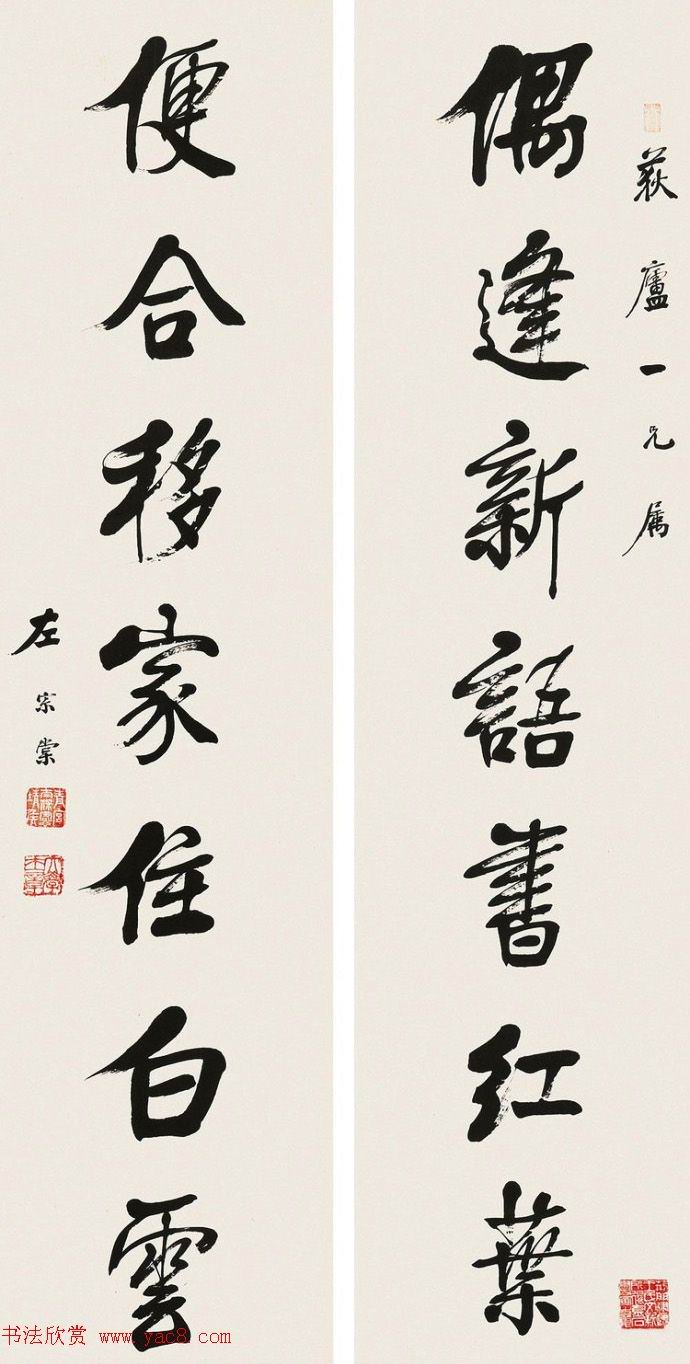 荻廬一兄屬
偶逢新語書紅葉
便合移家住白雲
左宗棠
书法欣赏 www.yac8.com